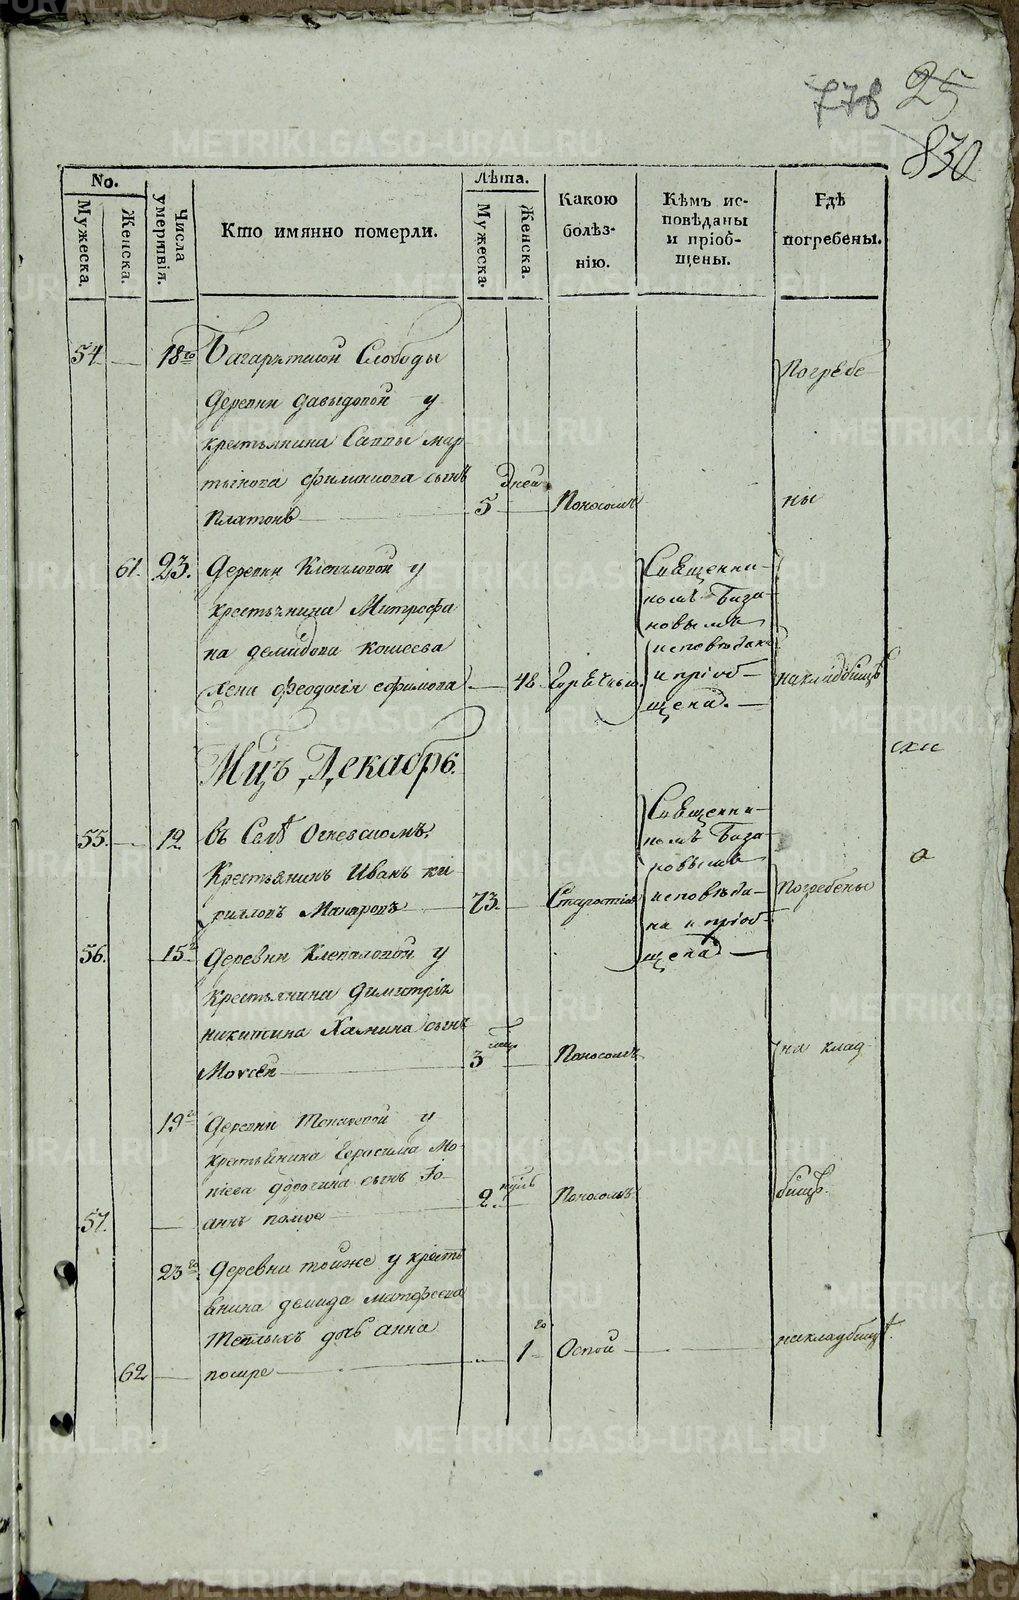 778 25
830
No.
Мужеска.
Женска.
Числа умерших.
Кто имянно померли.
Лѣта.
Мужеска.
Женска.
Какою болѣз- нію.
Кѣмъ ис- повѣданы и пріоб- щены.
Гдѣ погребены.
54. 18го Багаряцкой Слободы
деревни Давыдовой у
крестьянина Саввы мар
тынова сынъ
Платонъ 5 дней Поносомъ
Погребе
ны
61. 23. Деревни Клепаловой у
крестьянина Митрофа
на демидова кошеева
жена феодосія ефимова 48 Горячкою.
Священни-
комъ Биза-
новымъ
исповѣдана
и пріоб-
щена.
на кладбищѣ
Мцъ Декабрь.
55. 12 въ Селѣ Огневскомъ,
Крестьянинъ Иванъ ки
рилловъ Макаровъ 73. Старостію
Священни-
комъ Биза-
новымъ
исповѣда-
на и пріоб-
щена
Погребены
ски
а
56. 15го Деревни Клепаловой у
крестьянина димитрія
никитина Хамина сынъ
Моvсей 3 мцъ Поносомъ
на клад-
19го деревни у
крестьянина Герасима Мо-
кіева дорогина сынъ Іо-
57. аннъ помре 2. ндѣль Поносомъ
бищѣ.
23го Деревни тойже у кресть
янина демида матфеева
Теплыхъ дчь анна
62 помре 1го Оспой на кладбищѣ.
METRIKI.GASO-URAL.RU